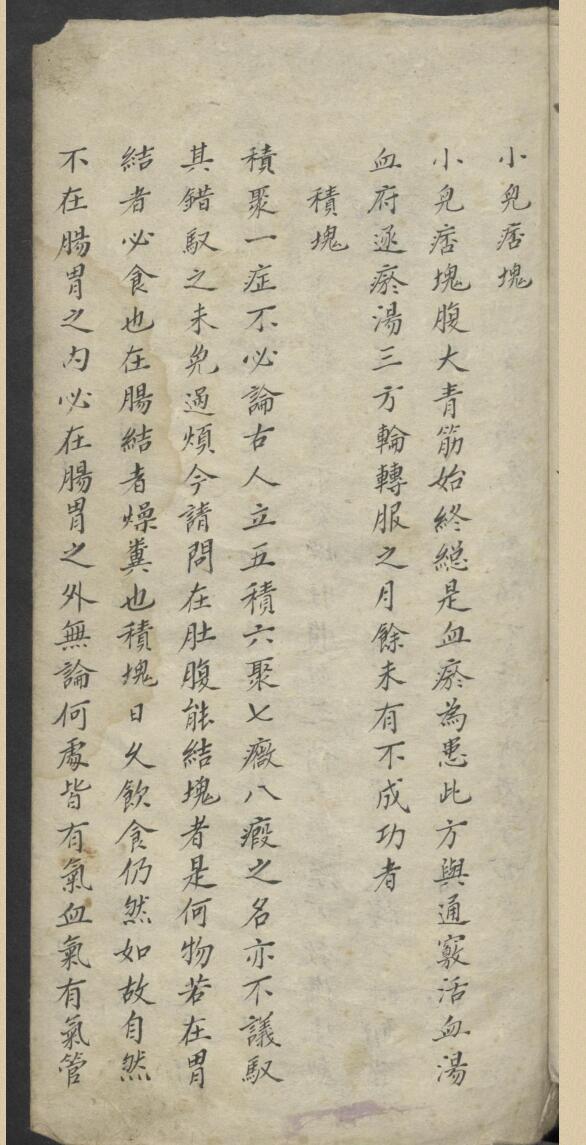 小兒痞塊
小兒痞塊腹大青筋始終總是血瘀為患此方與通竅活血湯
血府逐瘀湯三方輪轉服之月餘未有不成功者
積塊
積聚一症不必論古人立五積六聚七癥八瘕之名亦不議馭
其錯馭之未免過煩今請問在肚腹能結塊者是何物若在胃
結者必食也在腸結者燥糞也積塊日久飲食仍然如故自然
不在腸胃之內必在腸胃之外無論何處皆有氣血氣有氣管